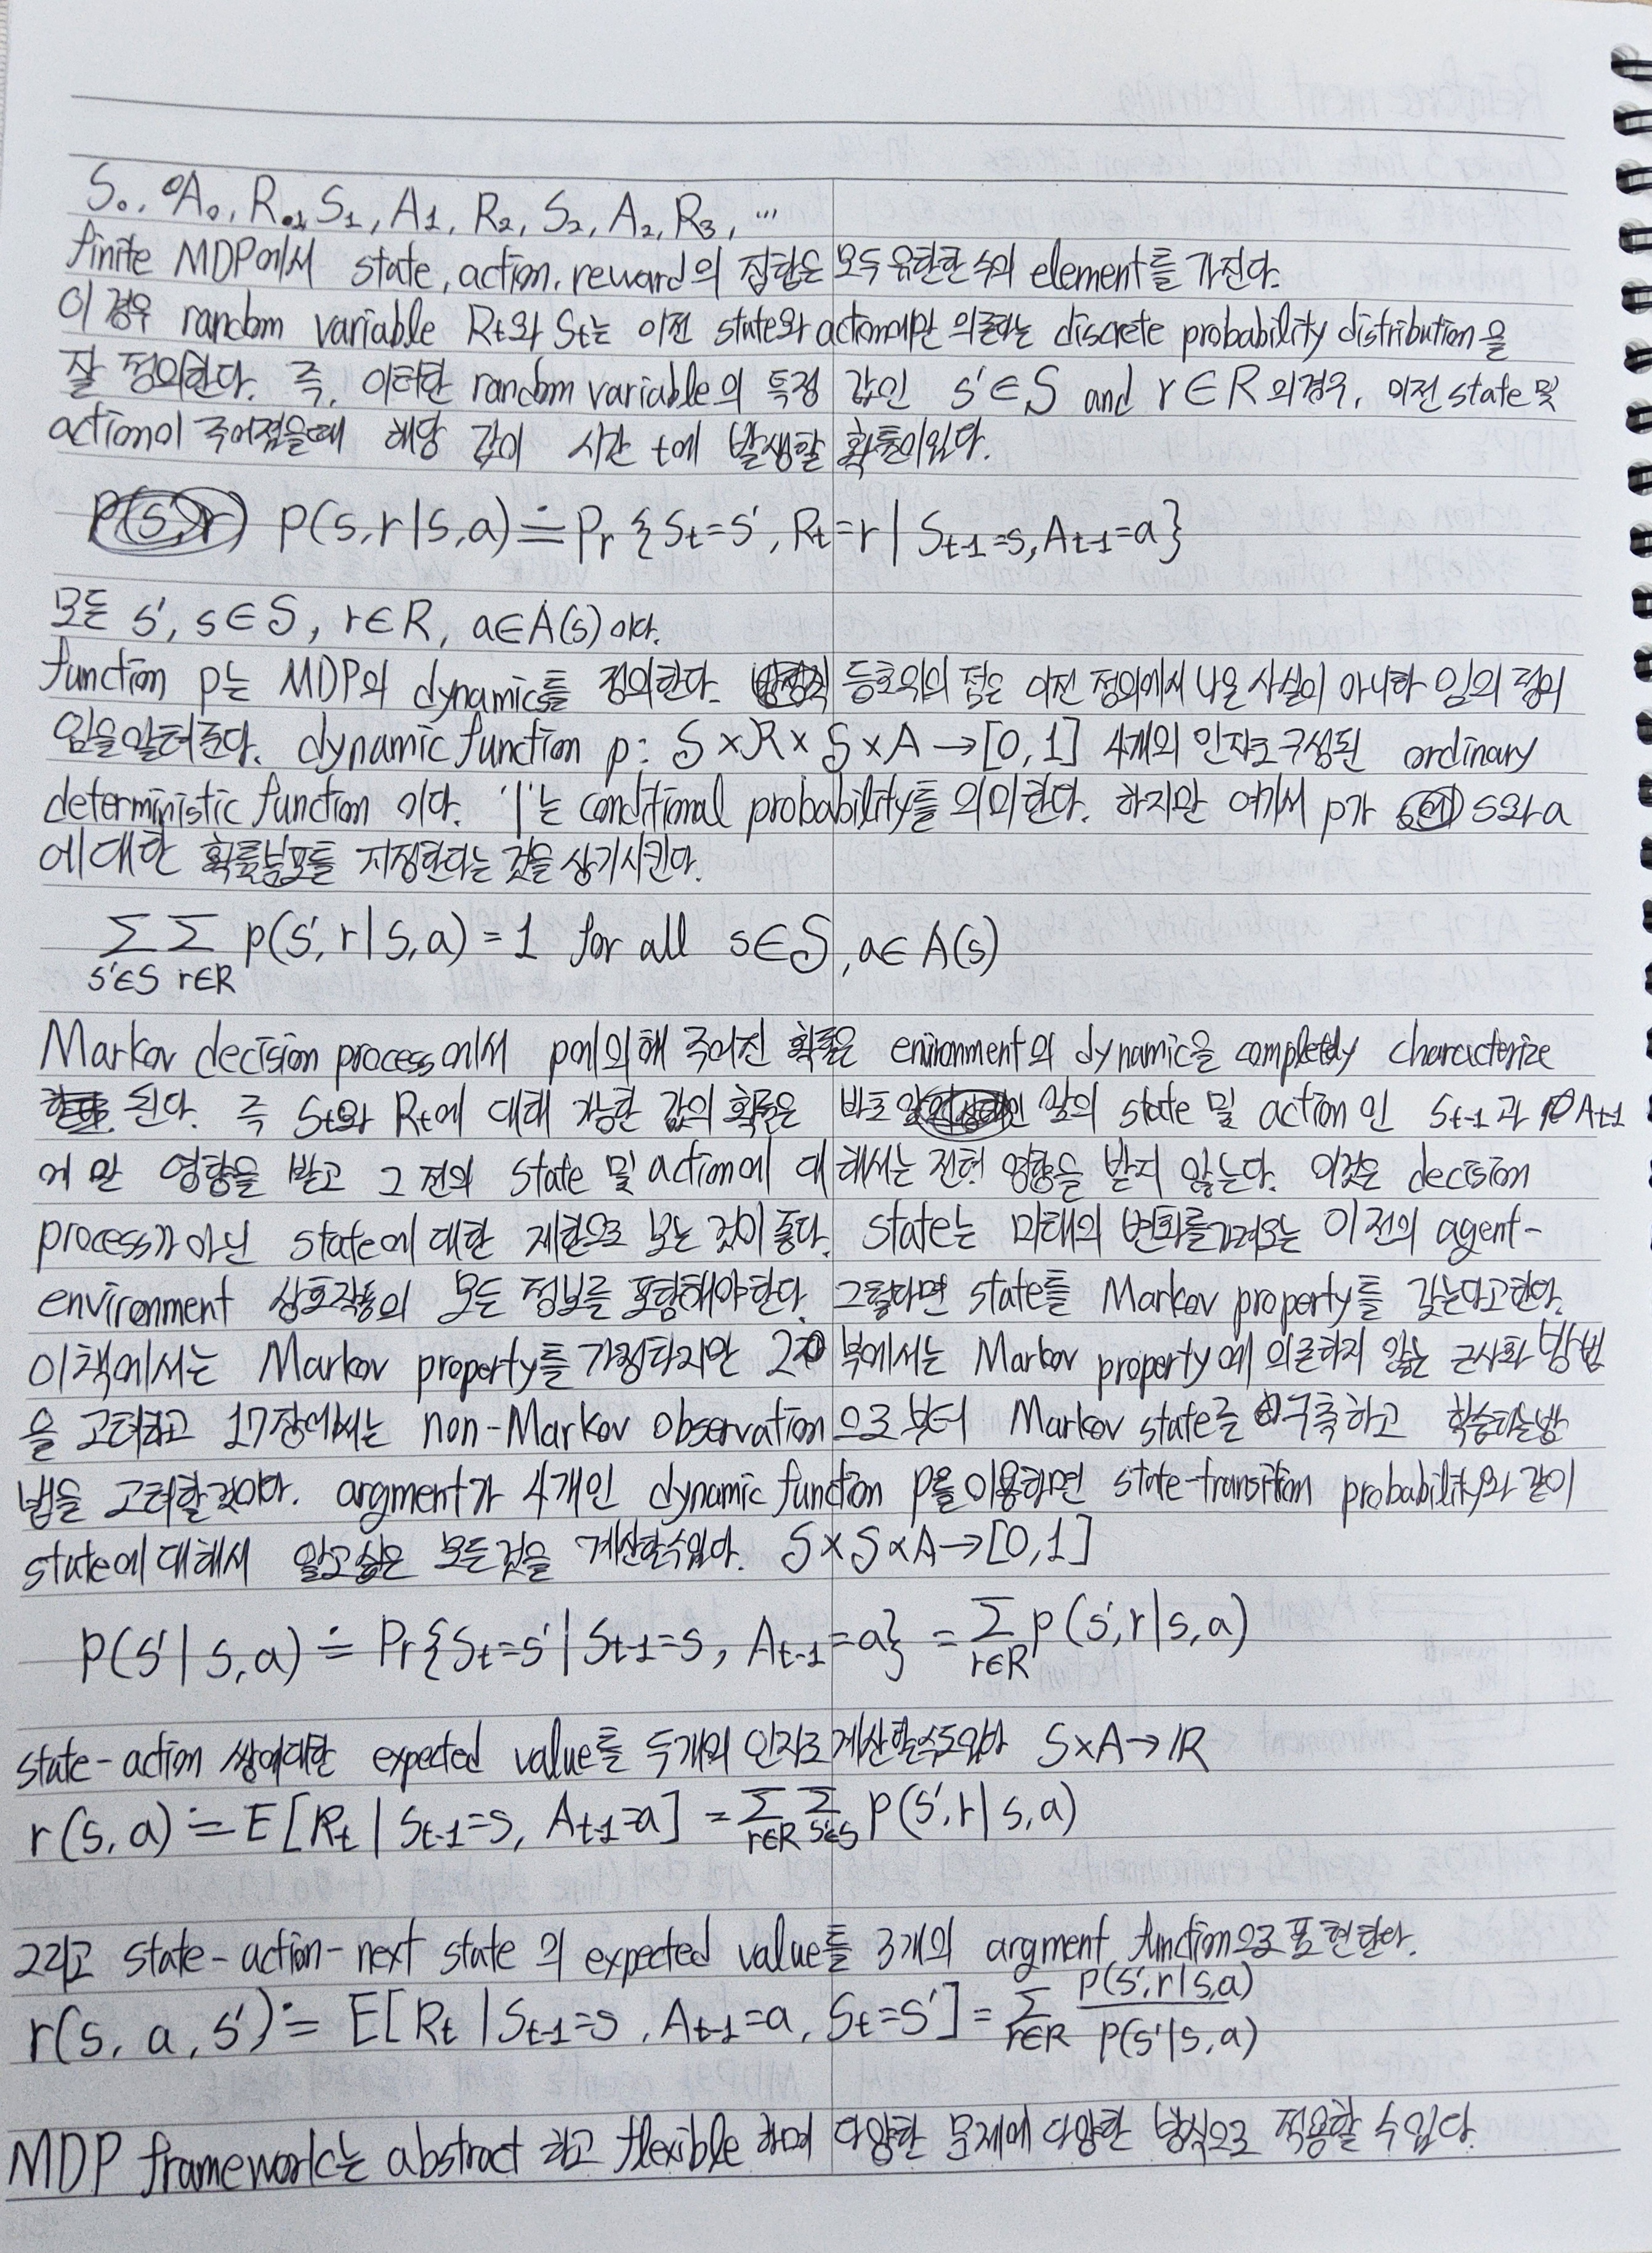 S₀, A₀, R₁, S₁, A₁, R₂, S₂, A₂, R₃, ...
finite MDP에서 state, action, reward의 집합은 모두 유한한 수의 element를 가진다.
이 경우 random variable Rt와 St는 이전 state와 action에만 의존하는 discrete probability distribution을
잘 정의한다. 즉, 이러한 random variable의 특정 값인 s'∈S and r∈R의 경우, 이전 state 및
action이 주어졌을때 해당 값이 시간 t에 발생할 확률이 있다.
p(s,r|s,a) ≐ Pr {St=s', Rt=r | St-1=s, At-1=a}
모든 s', s∈S, r∈R, a∈A(s)이다.
function p는 MDP의 dynamics를 정의한다. 등호위의 점은 이전 정의에서 나온 사실이 아니라 임의 정의
임을 알려준다. dynamic function p: S×R×S×A→[0,1] 4개의 인자로 구성된 ordinary
deterministic function 이다. '|'는 conditional probability를 의미한다. 하지만 여기서 p가 s와 a
에 대한 확률분포를 지정한다는 것을 상기시킨다.
∑ ∑ p(s', r|s,a) = 1 for all s∈S, a∈A(s)
s'∈S r∈R
Markov decision process에서 p에 의해 주어진 확률은 enironment의 dynamic을 completely characterize
된다. 즉 St와 Rt에 대해 가능한 값의 확률은 바로 앞의 state 및 action 인 St-1과 At-1
에만 영향을 받고 그 전의 state 및 action에 대해서는 전혀 영향을 받지 않는다. 이것은 decision
process가 아닌 state에 대한 제한으로 보는 것이 좋다. state는 미래의 변화를 가져오는 이전의 agent-
environment 상호작용의 모든 정보를 포함해야한다. 그렇다면 state를 Markov property를 갖는다고한다.
이책에서는 Markov property를 가정하지만 2부에서는 Markov property에 의존하지 않는 근사화 방법
을 고려하고 17장에서는 non-Markov observation으로 부터 Markov state를 구축하고 학습하는방
법을 고려할것이다. argment가 4개인 dynamic function p를 이용하면 state-transition probability와 같이
state에 대해서 알고싶은 모든것을 계산할수있다. S×S×A→[0,1]
p(s'|s,a) ≐ Pr{St=s'|St-1=s, At-1=a} = ∑ p(s',r|s,a)
r∈R
state-action 쌍에대한 expected value를 두개의 인자로 계산할수도있다 S×A→ℝ
r(s,a) ≐ E[Rt | St-1=s, At-1=a] = ∑ ∑ p(s',r|s,a)
r∈R s'∈S
그리고 state-action-next state 의 expected value를 3개의 argment function으로 표현한다.
r(s, a, s') ≐ E[Rt | St-1=s, At-1=a, St=s'] = ∑ p(s',r|s,a)
r∈R p(s'|s,a)
MDP framework는 abstract 하고 flexible 하며 다양한 문제에 다양한 방식으로 적용할 수 있다.